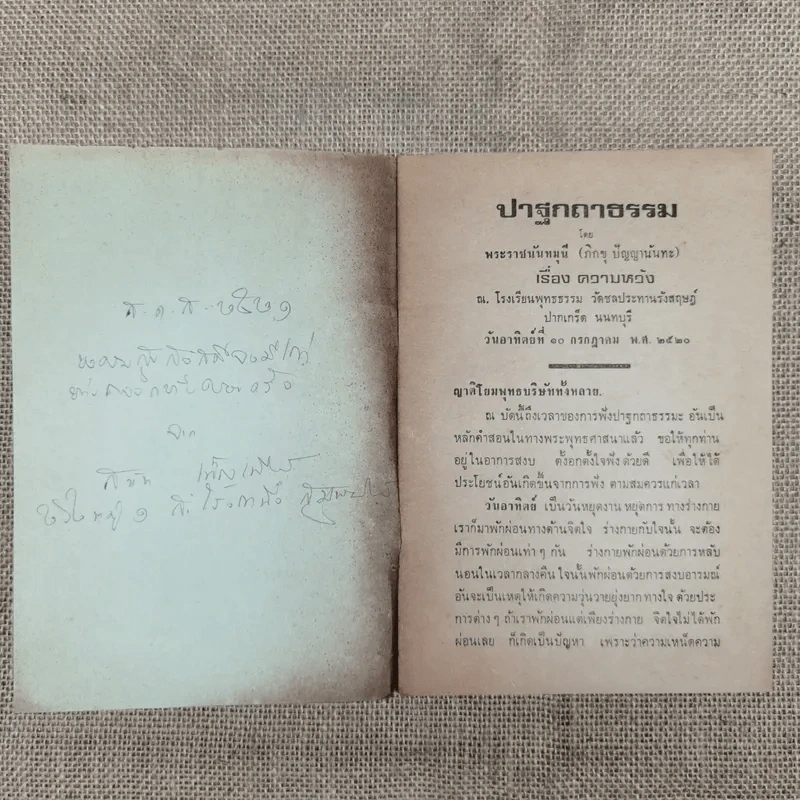 ส.ค.ส. ๒๕๒๑
จาก
ปาฐกถาธรรม
โดย
พระราชนันทมุนี (ภิกขุ ปัญญานันทะ)
เรื่อง ความหวัง
ณ. โรงเรียนพุทธธรรม วัดชลประทานรังสฤษฎ์
ปากเกร็ด นนทบุรี
วันอาทิตย์ที่ ๑๐ กรกฎาคม พ.ศ. ๒๕๒๐
ญาติโยมพุทธบริษัททั้งหลาย.
ณ บัดนี้ถึงเวลาของการฟังปาฐกถาธรรมะ อันเป็น
หลักคำสอนในทางพระพุทธศาสนาแล้ว ขอให้ทุกท่าน
อยู่ในอาการสงบ ตั้งอกตั้งใจฟังด้วยดี เพื่อให้ได้
ประโยชน์อันเกิดขึ้นจากการฟัง ตามสมควรแก่เวลา
วันอาทิตย์ เป็นวันหยุดงาน หยุดการ ทางร่างกาย
เราก็มาพักผ่อนทางด้านจิตใจ ร่างกายกับใจนั้น จะต้อง
มีการพักผ่อนเท่า ๆ กัน ร่างกายพักผ่อนด้วยการหลับ
นอนในเวลากลางคืน ใจนั้นพักผ่อนด้วยการสงบอารมณ์
อันจะเป็นเหตุให้เกิดความวุ่นวายยุ่งยาก ทางใจ ด้วยประ
การต่าง ๆ ถ้าเราพักผ่อนแต่เพียงร่างกาย จิตใจไม่ได้พัก
ผ่อนเลย ก็เกิดเป็นปัญหา เพราะว่าความเหน็ดความ